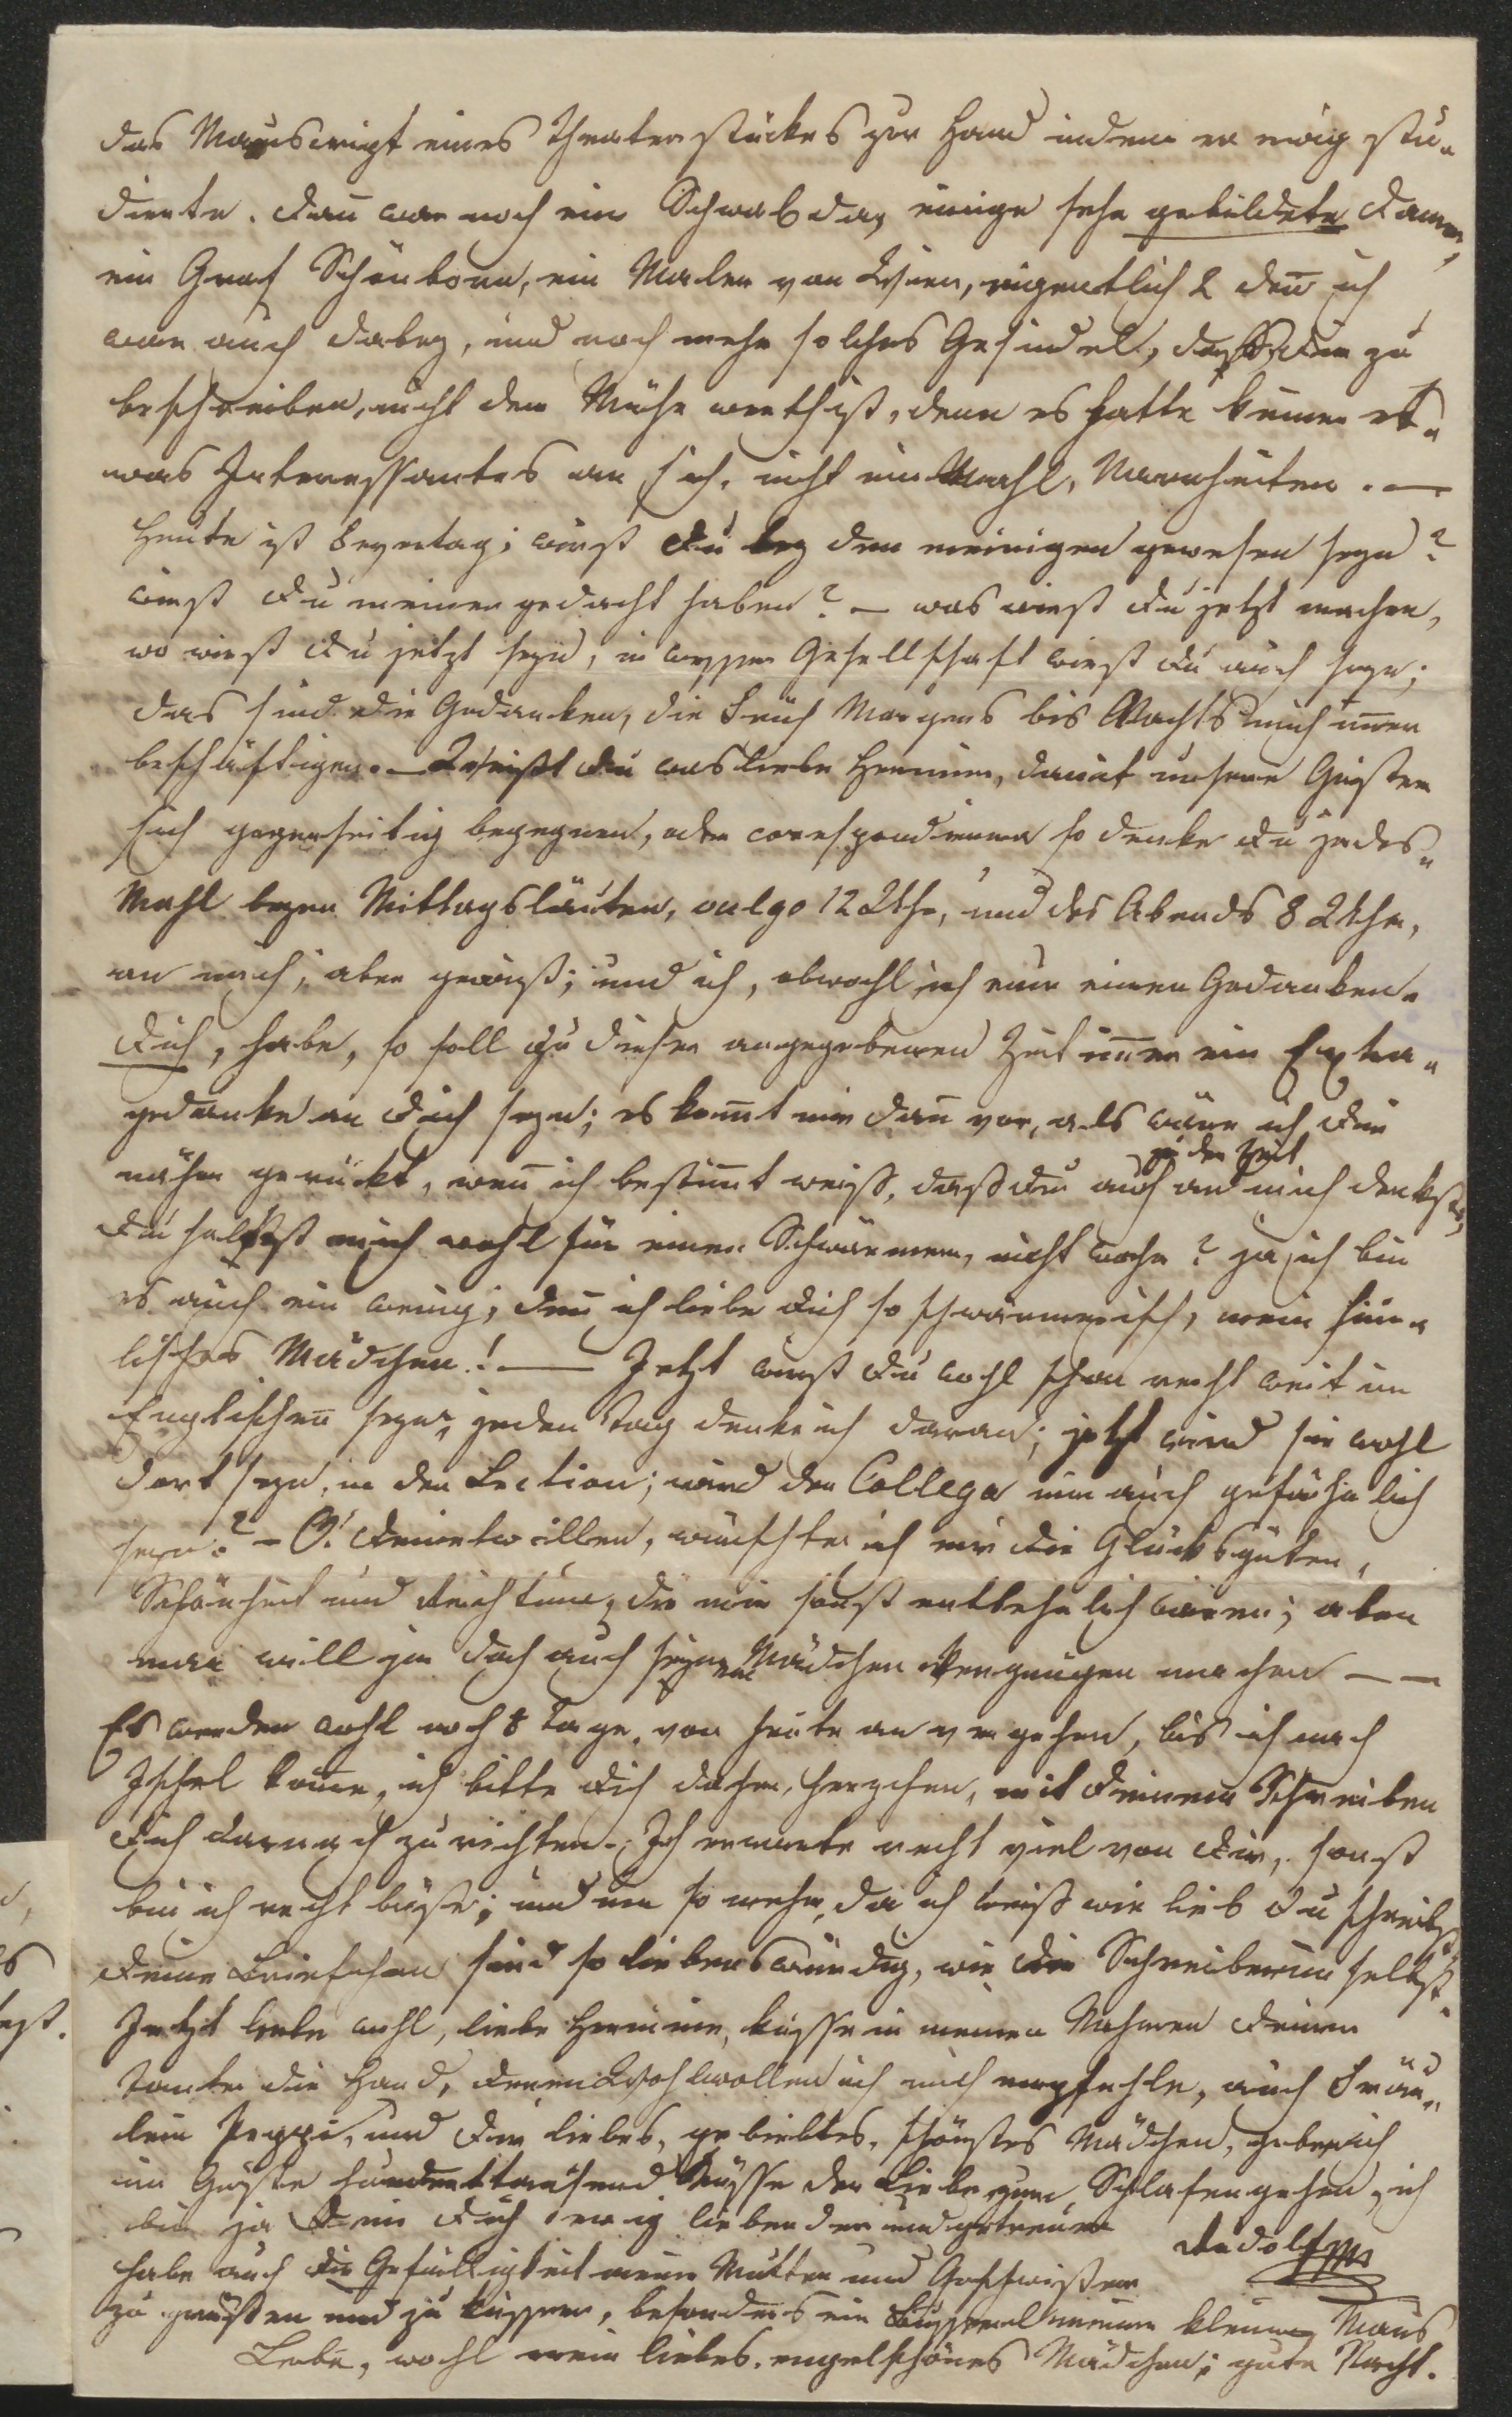 das Manuscript eines Theaterstückes zur Hand indem er ewig stu-
dierte. Dan̄ war noch ein Schwab da, einige sehr gebildete Damen,
ein Graf Schönborn, ein Maler von Wien, eigentlich 2 den̄ ich
war auch dabey, und noch mehr solches Gesindel, daß Dir zu
beschreiben, nicht der Mühe werth ist, denn es hatte keiner et-
was Interessantes an sich, nicht einmahl, Narrheiten. —
Heute ist Feyertag; wirst Du bey den meinigen gewesen seyn?
wirst Du meiner gedacht haben? — was wirst Du jetzt machen,
wo wirst Du jetzt seyn, in wessen Gesellschaft wirst Du auch seyn;
das sind die Gedanken, die Früh Morgens bis Nachts mich im̄er
beschäftigen. — Weißt Du was liebe Hermine, damit unsere Geister
sich gegenseitig begegnen, oder correspondieren so denke Du jedes-
Mahl beym Mittagsläuten, vulgo 12 Uhr, und des Abends 8 Uhr,
an mich; aber gewiß; und ich, obwohl ich nur einen Gedanken-
Dich, habe, so soll zu dieser angegebenen Zeit im̄er ein Extra-
gedanke an Dich seyn; es kom̄t mir dan̄ vor, als wäre ich Dir
näher gerückt, wen̄ ich bestim̄t weiß, daß Du auch zu der Zeit an mich denkst,
Du haltest mich wohl für einen Schwärmer, nicht wahr? ja ich bin
es auch ein wenig; den̄ ich liebe Dich so schwärmerisch, mein him-
lisches Mädchen! — Jetzt wirst Du wohl schon recht weit im
Englischen seyn, jeden Tag denke ich daran; jetzt wird sie wohl
dort seyn, in der Lection; wird der College nun auch gefährlich
seyn? — O! Deinetwillen, wünschte ich mir die Glücksgüter,
Schönheit und Reichtum, die mir sonst entbehrlich wären; aber
man will ja doch auch seinem Mädchen Vergnügen machen — —
Es werden wohl noch 8 Tage, von heute an vergehen, bis ich nach
Ischel kom̄e, ich bitte Dich daher, Herzchen, mit Deinem Schreiben
Dich darnach zu richten. Ich erwarte recht viel von Dir, sonst
bin ich recht böse; und um so mehr, da ich weiß wie lieb Du schreibst
Deine Briefchen sind so liebenswürdig, wie die Schreiberinn selbst.
Jetzt lebe wohl, liebe Hermine, küsse in meinem Nahmen Deiner
Tante die Hand, deren Wohlwollen ich mich empfehle, auch Fräu-
lein Peppi, und Dir liebes, geliebtes, schönstes Mädchen, gebe ich
im Geiste hunderttausend Küsse der Liebe zum Schlafengehen, ich
bin ja Dein Dich ewig liebender und getreuer
Rudolf
habe auch die Gefälligkeit meine Mutter und Geschwister
zu grüßen und zu küssen, besonders ein Busserl meiner kleinen Maus
Lebe, wohl mein liebes, engelschönes Mädchen; gute Nacht.